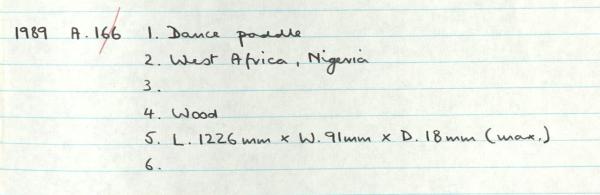 1989 A.166 1. Dance paddle
2. West Africa, Nigeria
3.
4. Wood
5. L. 1226mm x W. 91mm x D. 18mm (max.)
6.